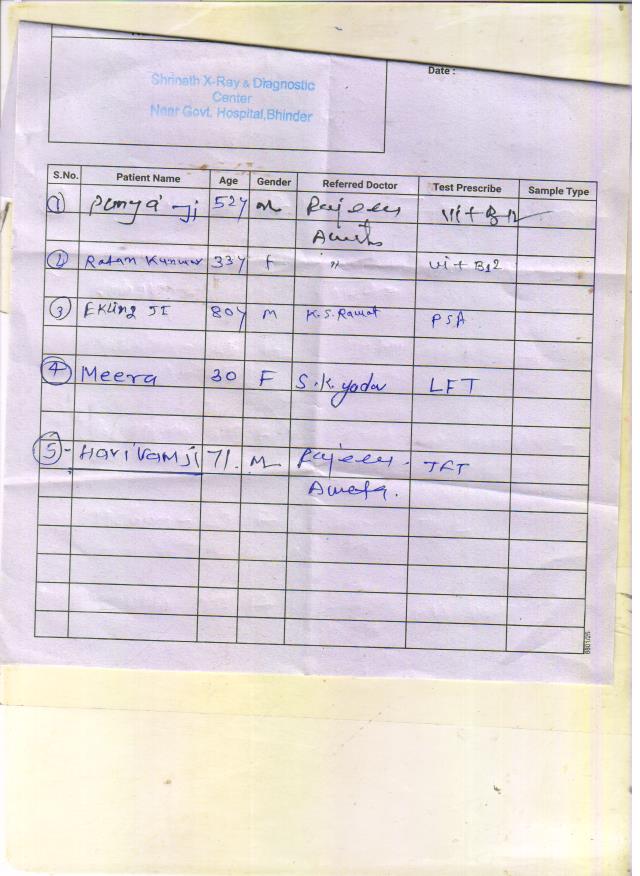 Date :
Shrinath X-Ray & Diagnostic
Center
Near Govt. Hospital,Bhinder
S.No. Patient Name Age Gender Referred Doctor Test Prescribe Sample Type
1 Panya Ji 52y M Rajeev Vit B12
Ameta
2 Ratan Kunwar 33y F " Vit B12
3 EKling JI 80y M K.S. Rawat PSA
4 Meera 30 F S.K. yadav LFT
5 - Hariramji 71. M Rajeev. TFT
Ameta.